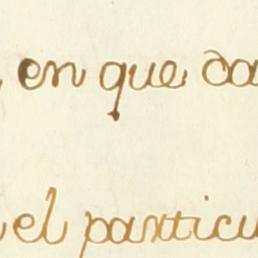 en que da
el particu